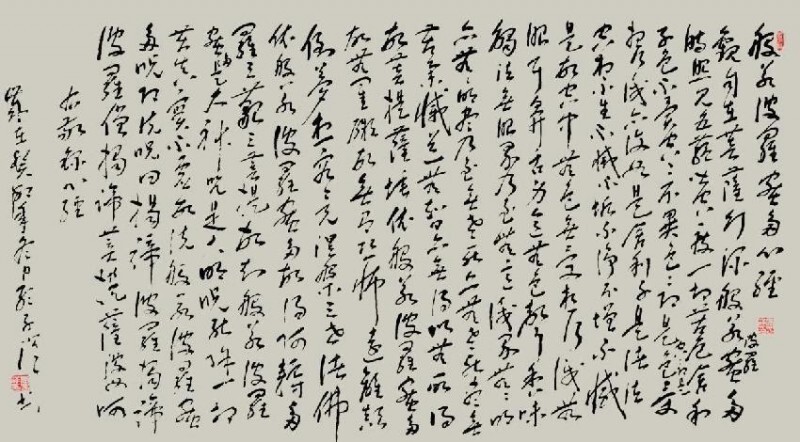 般若波羅蜜多心經
觀自在菩薩行深般若蜜多
波羅
時照見五蘊皆空度一切苦厄舍利
子色不異空空不異色色即是空受
想行識亦復如是舍利子是諸法
空相不生不滅不垢不淨不增不減
是故空中無色無受想行識無
眼耳鼻舌身意無色聲香味
觸法無眼界乃至無意識界無無明
亦無無明盡乃至無老死亦無老死盡無
苦集滅道無智亦無得以無所得
故菩提薩埵依般若波羅蜜多
故無罣礙故無有恐怖遠離顛
倒夢想究竟涅槃三世諸佛
依般若波羅蜜多故得阿耨多
羅三藐三菩提故知般若波羅
蜜多是大神呪是大明呪能除一切
苦真實不虛故說般若波羅蜜
多呪即說呪曰揭諦波羅揭諦
波羅僧揭諦菩提薩婆呵
右敬錄心經
歲在癸巳書